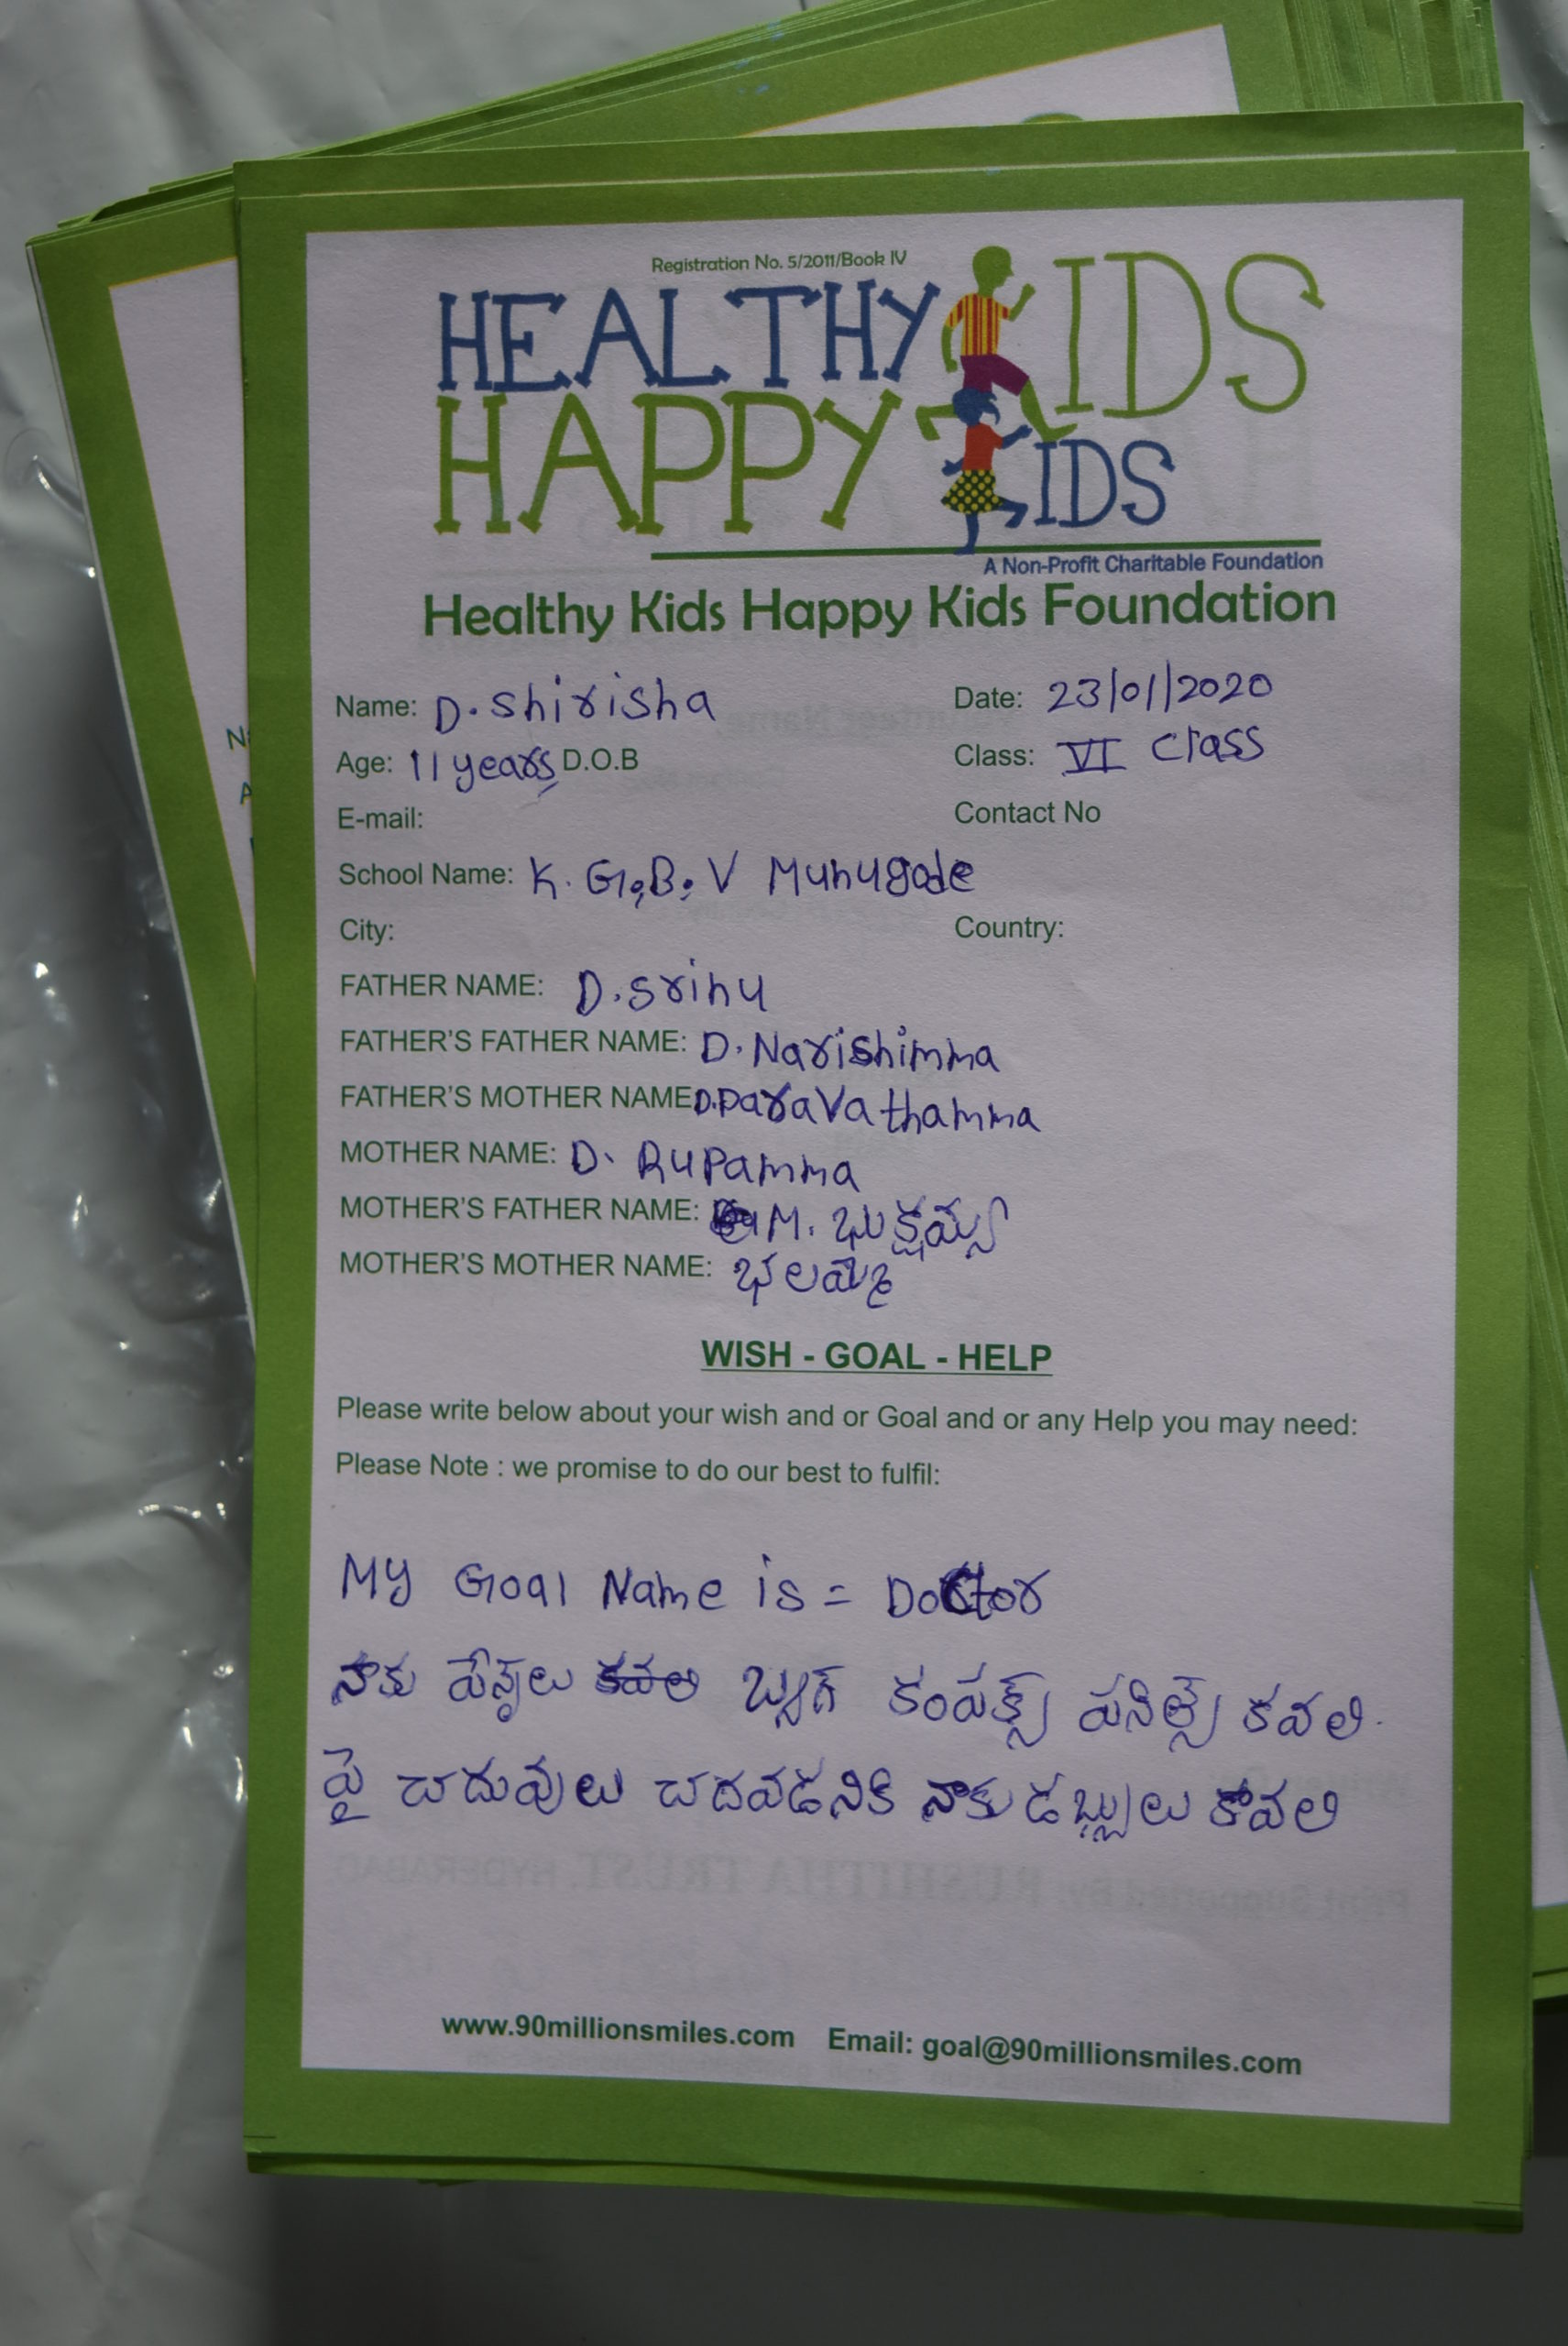 Registration No. 5/2011/Book IV
HEALTHY KIDS
HAPPY KIDS
A Non-Profit Charitable Foundation
Healthy Kids Happy Kids Foundation
Name: D. Shirisha Date: 23/01/2020
Age: 11 years D.O.B Class: VI Class
E-mail: Contact No
School Name: K. G. B. V Munugode
City: Country:
FATHER NAME: D. Srinu
FATHER'S FATHER NAME: D. Narishimma
FATHER'S MOTHER NAME D. Paravathamma
MOTHER NAME: D. Rupamma
MOTHER'S FATHER NAME: M. భుక్షమ్య
MOTHER'S MOTHER NAME:
WISH - GOAL - HELP
Please write below about your wish and or Goal and or any Help you may need:
Please Note : we promise to do our best to fulfil:
My Goal Name is = Doctor
నాకు పేన్లేలు బ్యగ్ కంపక్స్ కవలి.
పై చదువులు చదవడనికి నాకు డబ్బులు కావలి
www.90millionsmiles.com Email: goal@90millionsmiles.com